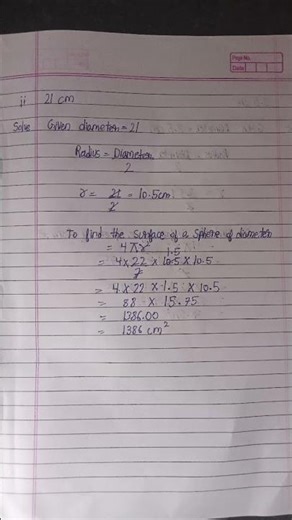 Page No.
Date
ii 21 cm
Solve Given diameter = 21
Radius = Diameter
2
r = 21 = 10.5cm
2
To find the Surface of a Sphere of diameter
= 4πr²
1.5
= 4 x 22 x 10.5 x 10.5
7
= 4 x 22 x 1.5 x 10.5
= 88 x 15.75
= 1386.00
= 1386 cm²